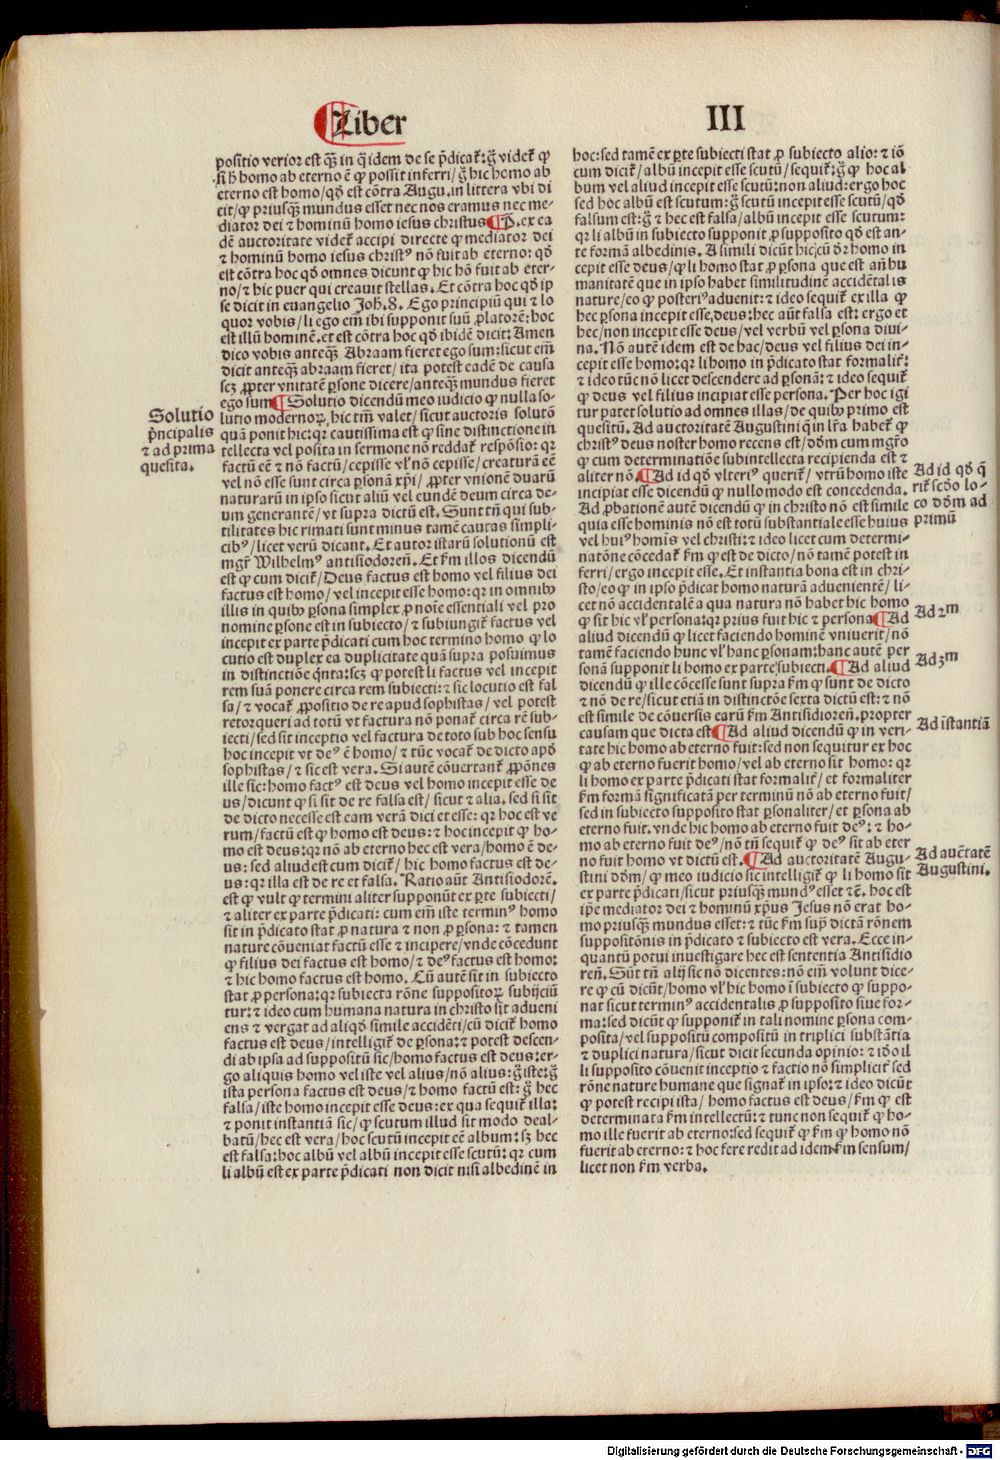 Liber III
positio verior est qȝ in q̄ idem de se p̄dicat᷑: g̊ videt᷑ ꝙ
si h̄ homo ab eterno ē ꝙ possit inferri/ g̊ hic homo ab
eterno est homo/ qd̓ est cōtra Augu. in littera vbi di
cit/ ꝙ priusqȝ mundus esset nec nos eramus nec me-
diator dei ⁊ hominū homo iesus christus ¶ P. ex ea
dē auctoritate videt᷑ accipi directe ꝙ mediator dei
⁊ hominū homo iesus christ⁹ nō fuit ab eterno: qd̓
est cōtra hoc qd̓ omnes dicunt ꝙ hic hō fuit ab eter-
no/ ⁊ hic puer qui creauit stellas. Et cōtra hoc qd̓ ip
se dicit in euangelio Joh̄. 8. Ego principiū qui ⁊ lo
quor vobis/ li ego em̄ ibi supponit suū ꝓlatorē: hoc
est illū hominē. et est cōtra hoc qd̓ ibidē dicit: Amen
dico vobis anteqȝ Abraam fieret ego sum: sicut em̄
dicit anteqȝ abraam fieret/ ita potest eadē de causa
scȝ ꝓpter vnitatē ꝑsone dicere/ anteqȝ mundus fieret
ego sum ¶ Solutio dicendū meo iudicio ꝙ nulla so-
lutio modernoꝝ, hic tm̄ valet/ sicut auctoris solutō
quā ponit hic: qꝛ cautissima est ꝙ sine distinctione in
tellecta vel posita in sermone nō reddat᷑ respōsio: qꝛ
factū eē ⁊ nō factū/ cepisse vl᷑ nō cepisse/ creaturā eē
vel nō esse sunt circa ꝑsonā xp̄i/ ꝓpter vnionē duarū
naturarū in ipso sicut aliū vel eundē deum circa de-
um generantē/ vt supra dictū est. Sunt tn̄ qui sub-
tilitates hic rimati sunt minus tamē cautas simpli-
cib⁹/ licet verū dicant. Et autor istarū solutionū est
mgr̄ Wilhelm⁹ antisiodoreñ. Et ẜm illos dicendū
est ꝙ cum dicit᷑/ Deus factus est homo vel filius dei
factus est homo/ vel incepit esse homo: qꝛ in omnibꝰ
illis in quibꝰ ꝑsona simplex ꝓ noīe essentiali vel pro
nomine ꝑsone est in subiecto/ ⁊ subiungit᷑ factus vel
incepit ex parte p̄dicati cum hoc termino homo ꝙ lo
cutio est duplex ea duplicitate quā supra posuimus
in distinctiōe q̄nta: scȝ ꝙ potest li factus vel incepit
rem suā ponere circa rem subiecti: ⁊ sic locutio est fal
sa/ ⁊ vocat᷑ ꝓpositio de re apud sophistas/ vel potest
retorqueri ad totū vt factura nō ponat᷑ circa rē sub-
iecti/ sed sit inceptio vel factura de toto sub hoc sensu
hoc incepit vt de⁹ ē homo/ ⁊ tūc vocat᷑ de dicto apd̓
sophistas/ ⁊ sic est vera. Si autē cōuertant᷑ ꝓpōnes
ille sic: homo fact⁹ est deus vel homo incepit esse de
us/ dicunt ꝙ si sit de re falsa est/ sicut ⁊ alia. sed si sit
de dicto necesse est eam verā dici et esse: qꝛ hoc est ve
rum/ factū est ꝙ homo est deus: ⁊ hoc incepit ꝙ ho-
mo est deus: qꝛ nō ab eterno hec est vera/ homo ē de-
us: sed aliud est cum dicit᷑/ hic homo factus est de-
us: qꝛ illa est de re et falsa. Ratio aūt Antisiodorē.
est ꝙ vult ꝙ termini aliter supponūt ex ꝑte subiecti/
⁊ aliter ex parte p̄dicati: cum em̄ iste termin⁹ homo
sit in p̄dicato stat ꝓ natura ⁊ non ꝓ ꝑsona: ⁊ tamen
nature cōueniat factū esse ⁊ incipere/ vnde cōcedunt
ꝙ filius dei factus est homo/ ⁊ de⁹ factus est homo:
⁊ hic homo factus est homo. Cū autē sit in subiecto
stat ꝓ persona: qꝛ subiecta rōne suppositoꝝ subijciū
tur: ⁊ ideo cum humana natura in christo sit adueni
ens ⁊ vergat ad aliqd̓ simile accidēti/ cū dicit᷑ homo
factus est deus/ intelligit᷑ de ꝑsona: ⁊ potest descen-
di ab ipsa ad suppositū sic/ homo factus est deus: er-
go aliquis homo vel iste vel alius/ nō alius: g̊ iste: g̊
ista persona factus est deus/ ⁊ homo factū est: g̊ hec
falsa/ iste homo incepit esse deus: ex qua sequit᷑ illa:
⁊ ponit instantiā sic/ ꝙ scutum illud sit modo deal-
batū/ hec est vera/ hoc scutū incepit eē album: sȝ hec
est falsa: hoc albū vel albū incepit esse scutū: qꝛ cum
li albū est ex parte p̄dicati non dicit nisi albedinē in
Solutio
p̄ncipalis
⁊ ad prima
quesita.
hoc: sed tamē ex ꝑte subiecti stat ꝓ subiecto alio: ⁊ iō
cum dicit᷑/ albū incepit esse scutū/ sequit᷑: g̊ ꝙ hoc al
bum vel aliud incepit esse scutū: non aliud: ergo hoc
sed hoc albū est scutum: g̊ scutū incepit esse scutū/ qd̓
falsum est: g̊ ⁊ hec est falsa/ albū incepit esse scutum:
qꝛ li albū in subiecto supponit ꝓ supposito qd̓ est an-
te formā albedinis. A simili dicūt hic/ cū dr̄ homo in
cepit esse deus/ ꝙ li homo stat ꝓ ꝑsona que est añ hu
manitatē que in ipso habet similitudinē accidētalis
nature/ eo ꝙ posteri⁹ aduenit: ⁊ ideo sequit᷑ ex illa ꝙ
hec ꝑsona incepit esse deus: hec aūt falsa est: ergo et
hec/ non incepit esse deus/ vel verbū vel ꝑsona diui-
na. Nō autē idem est de hac/ deus vel filius dei in-
cepit esse homo: qꝛ li homo in p̄dicato stat formalit᷑:
⁊ ideo tūc nō licet descendere ad ꝑsonā: ⁊ ideo sequit᷑
ꝙ deus vel filius incipiat esse persona. Per hoc igi
tur patet solutio ad omnes illas/ de quibꝰ primo est
quesitū. Ad auctoritatē Augustini q̄ in lr̄a habet᷑ ꝙ
christ⁹ deus noster homo recens est/ dōm cum mgr̄o
ꝙ cum determinatiōe subintellecta recipienda est ⁊
aliter nō. ¶ Ad id qd̓ vlteri⁹ querit᷑/ vtrū homo iste
incipiat esse dicendū ꝙ nullo modo est concedenda.
Ad ꝓbationē autē dicendū ꝙ in christo nō est simile
quia esse hominis nō est totū substantiale esse huius
vel hui⁹ homīs vel christi: ⁊ ideo licet cum determi-
natōne cōcedat᷑ ẜm ꝙ est de dicto/ nō tamē potest in
ferri/ ergo incepit esse. Et instantia bona est in chri-
sto/ eo ꝙ in ipso p̄dicat homo naturā aduenientē/ li-
cet nō accidentalē a qua natura nō habet hic homo
ꝙ sit hic vl᷑ persona: qꝛ prius fuit hic ⁊ persona ¶ Ad
aliud dicendū ꝙ licet faciendo hominē vniuerit/ nō
tamē faciendo hunc vl᷑ hanc ꝑsonam: hanc autē per
sonā supponit li homo ex parte subiecti. ¶ Ad aliud
dicendū ꝙ ille cōcesse sunt supra ẜm ꝙ sunt de dicto
⁊ nō de re/ sicut etiā in distinctōe sexta dictū est: ⁊ nō
est simile de cōuersis earū ẜm Antisidioreñ. propter
causam que dicta est ¶ Ad aliud dicendū ꝙ in veri-
tate hic homo ab eterno fuit: sed non sequitur ex hoc
ꝙ ab eterno fuerit homo/ vel ab eterno sit homo: qꝛ
li homo ex parte p̄dicati stat formalit᷑/ et formaliter
ẜm formā significatā per terminū nō ab eterno fuit/
sed in subiecto supposito stat ꝑsonaliter/ et ꝑsona ab
eterno fuit. vnde hic homo ab eterno fuit de⁹: ⁊ ho-
mo ab eterno fuit de⁹/ nō tn̄ sequit᷑ ꝙ de⁹ sit ab eter
no fuit homo vt dictū est. ¶ Ad auctoritatē Augu-
stini dōm/ ꝙ meo iudicio sic intelligit᷑ ꝙ li homo sit
ex parte p̄dicati/ sicut priusqȝ mund⁹ esset ⁊c̄. hoc est
ip̄e mediator dei ⁊ hominū xp̄us Jesus nō erat ho-
mo priusqȝ mundus esset: ⁊ tūc ẜm sup̄ dictā rōnem
suppositōnis in p̄dicato ⁊ subiecto est vera. Ecce in-
quantū potui inuestigare hec est sententia Antisidio
reñ. Sūt tn̄ alij sic nō dicentes: nō em̄ volunt dice-
re ꝙ cū dicūt/ homo vl᷑ hic homo ī subiecto ꝙ suppo-
nat sicut termin⁹ accidentalis ꝓ supposito siue for-
ma: sed dicūt ꝙ supponit᷑ in tali nomine ꝑsona com-
posita/ vel suppositū compositū in triplici substātia
⁊ duplici natura/ sicut dicit secunda opinio: ⁊ id̓o il
li supposito cōuenit inceptio ⁊ factio nō simplicit᷑ sed
rōne nature humane que signat᷑ in ipso: ⁊ ideo dicūt
ꝙ potest recipi ista/ homo factus est deus/ ẜm ꝙ est
determinata ẜm intellectū: ⁊ tunc non sequit᷑ ꝙ ho-
mo ille fuerit ab eterno: sed sequit᷑ ꝙ ẜm ꝙ homo nō
fuerit ab eterno: ⁊ hoc fere redit ad idem ẜm sensum/
licet non ẜm verba.
Ad id qd̓ q̄
rit᷑ scd̓o lo-
co dōm ad
primū
Ad 2m
Ad 3m
Ad īstantiā
Ad auc̄tatē
Augustini.
Digitalisierung gefördert durch die Deutsche Forschungsgemeinschaft - DFG